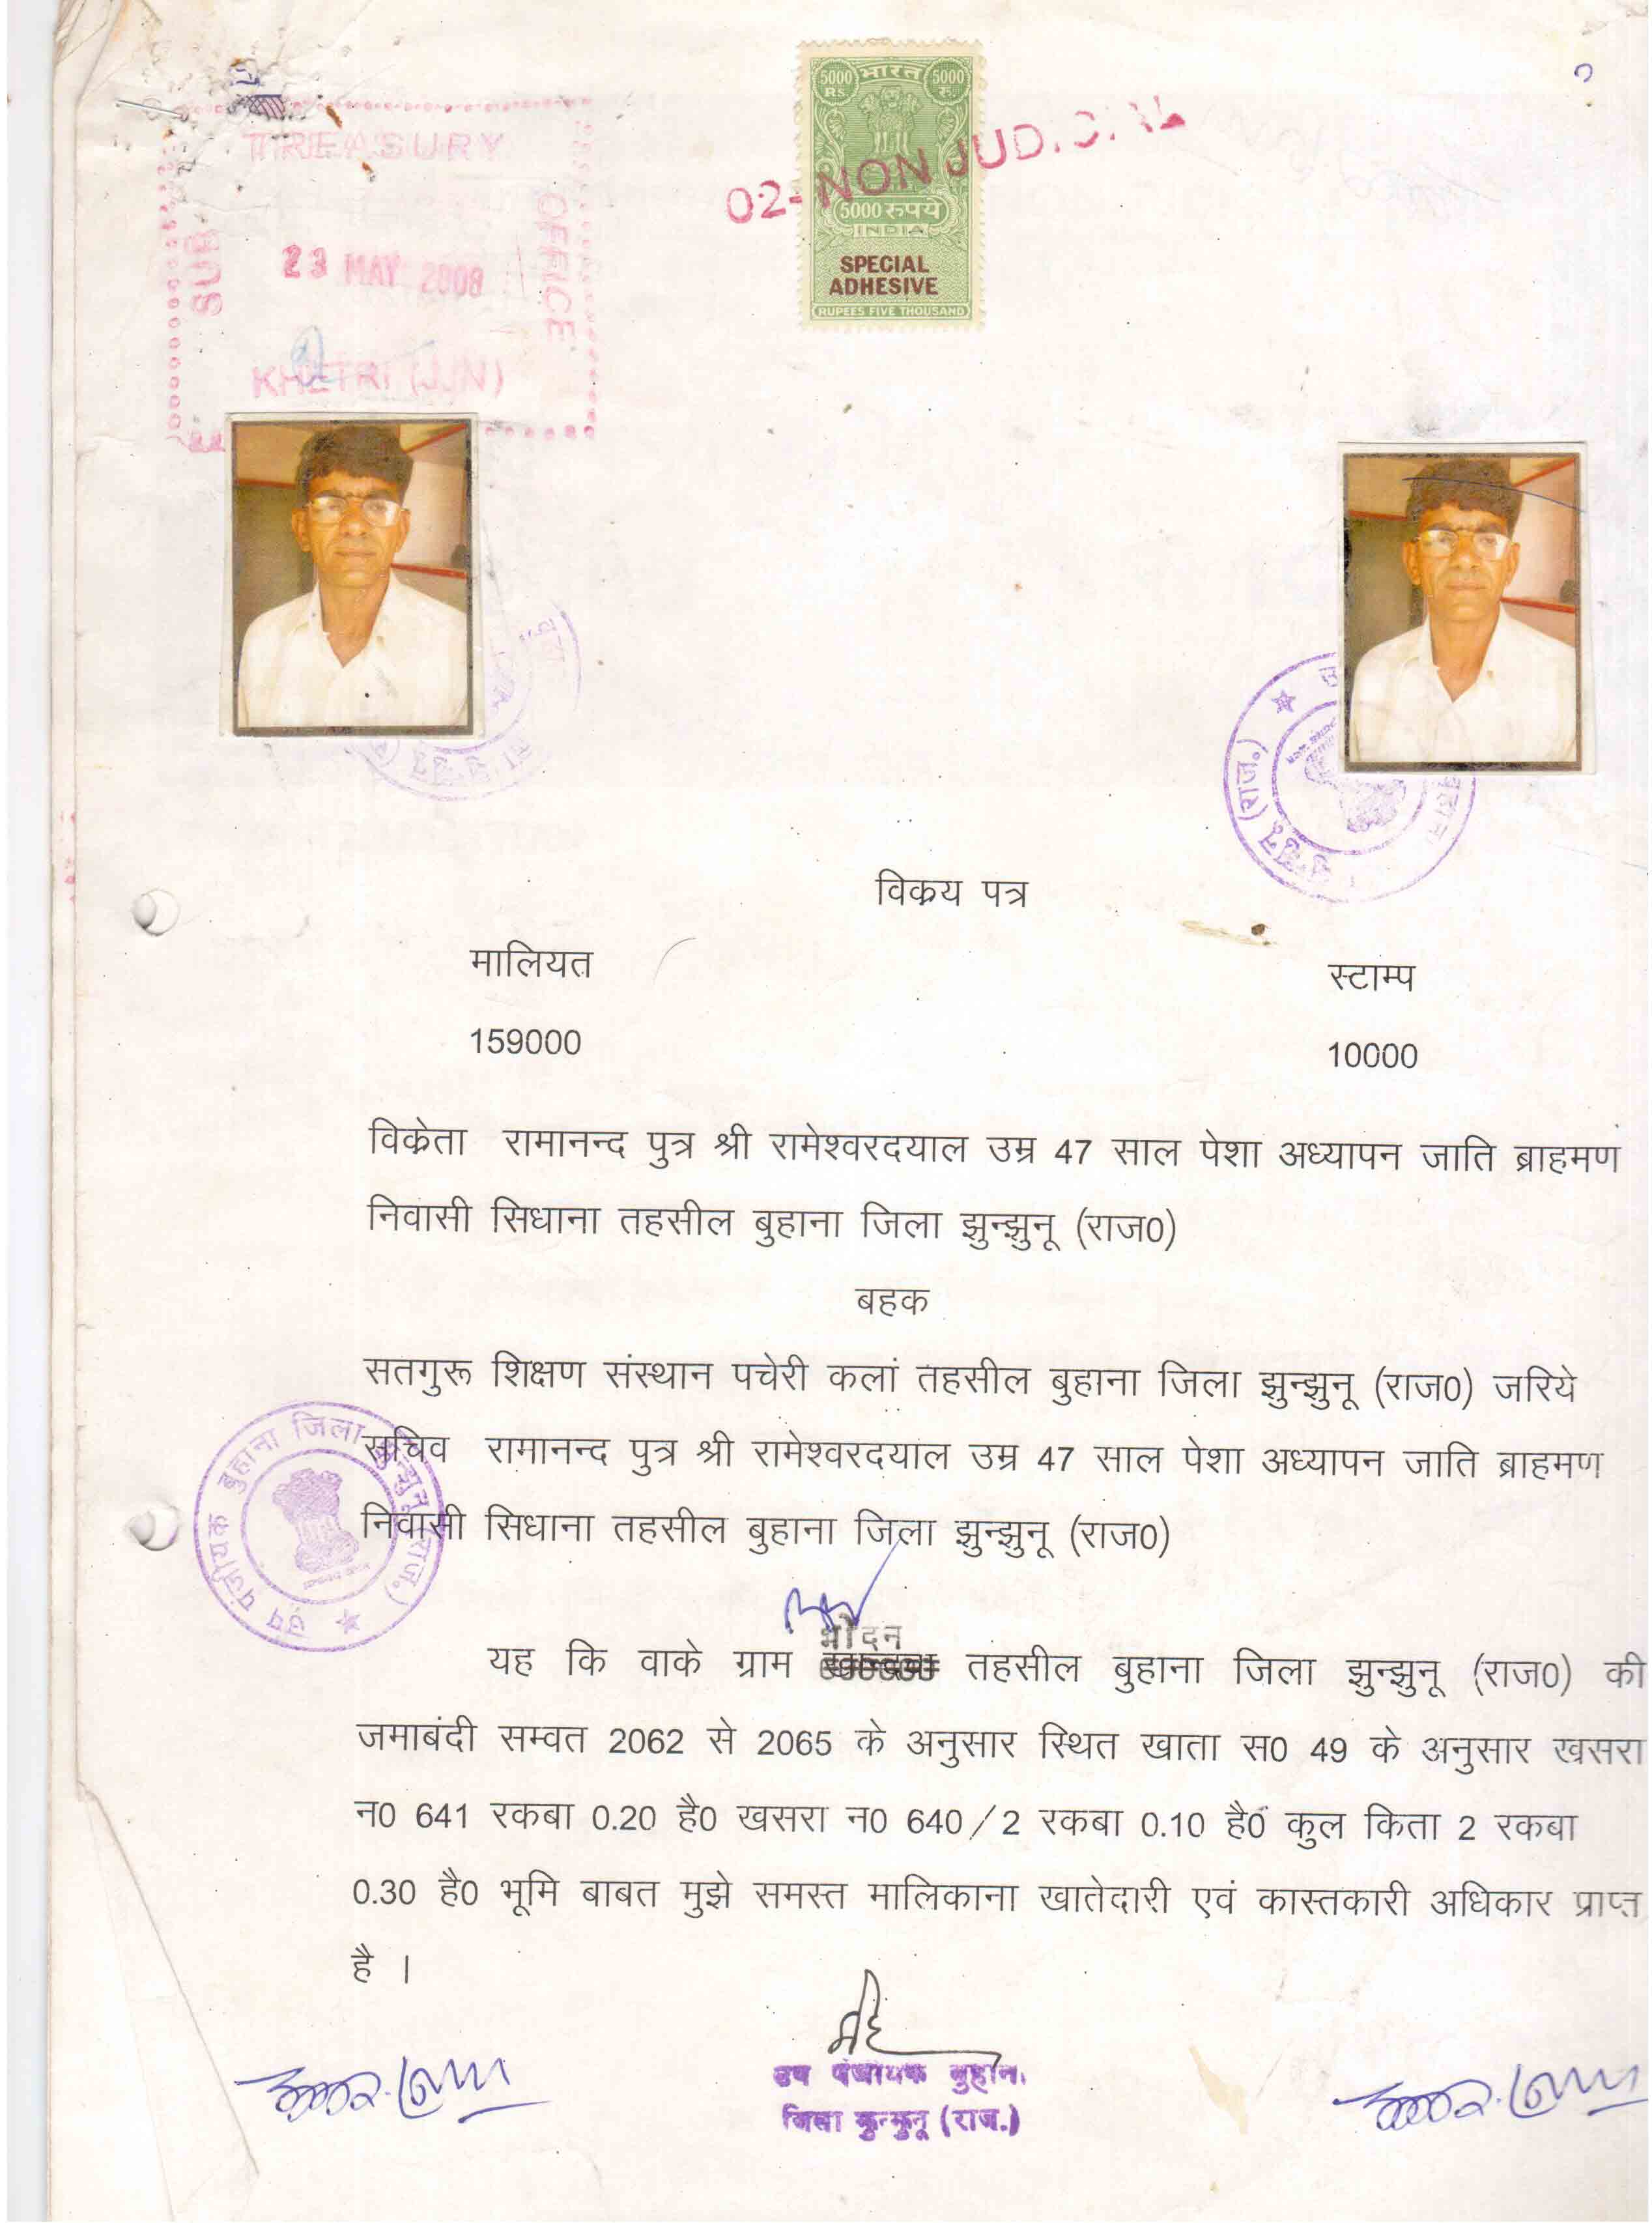 TREASURY
SUB
OFFICE
23 MAY 2008
KHETRI (JJN)
5000 भारत 5000
RS. रु.
02-NON JUD
5000 रुपये
INDIA
SPECIAL
ADHESIVE
RUPEES FIVE THOUSAND
विक्रय पत्र
मालियत स्टाम्प
159000 10000
विक्रेता रामानन्द पुत्र श्री रामेश्वरदयाल उम्र 47 साल पेशा अध्यापन जाति ब्राहमण
निवासी सिधाना तहसील बुहाना जिला झुन्झुनू (राज0)
बहक
सतगुरू शिक्षण संस्थान पचेरी कलां तहसील बुहाना जिला झुन्झुनू (राज0) जरिये
सचिव रामानन्द पुत्र श्री रामेश्वरदयाल उम्र 47 साल पेशा अध्यापन जाति ब्राहमण
निवासी सिधाना तहसील बुहाना जिला झुन्झुनू (राज0)
उप पंजीयक बुहाना जिला झुन्झुनू (राज.)
भोदन
यह कि वाके ग्राम तहसील बुहाना जिला झुन्झुनू (राज0) की
जमाबंदी सम्वत 2062 से 2065 के अनुसार स्थित खाता स0 49 के अनुसार खसरा
न0 641 रकबा 0.20 है0 खसरा न0 640/2 रकबा 0.10 है0 कुल किता 2 रकबा
0.30 है0 भूमि बाबत मुझे समस्त मालिकाना खातेदारी एवं कास्तकारी अधिकार प्राप्त
है ।
उप पंजीयक बुहाना
जिला झुन्झुनू (राज.)